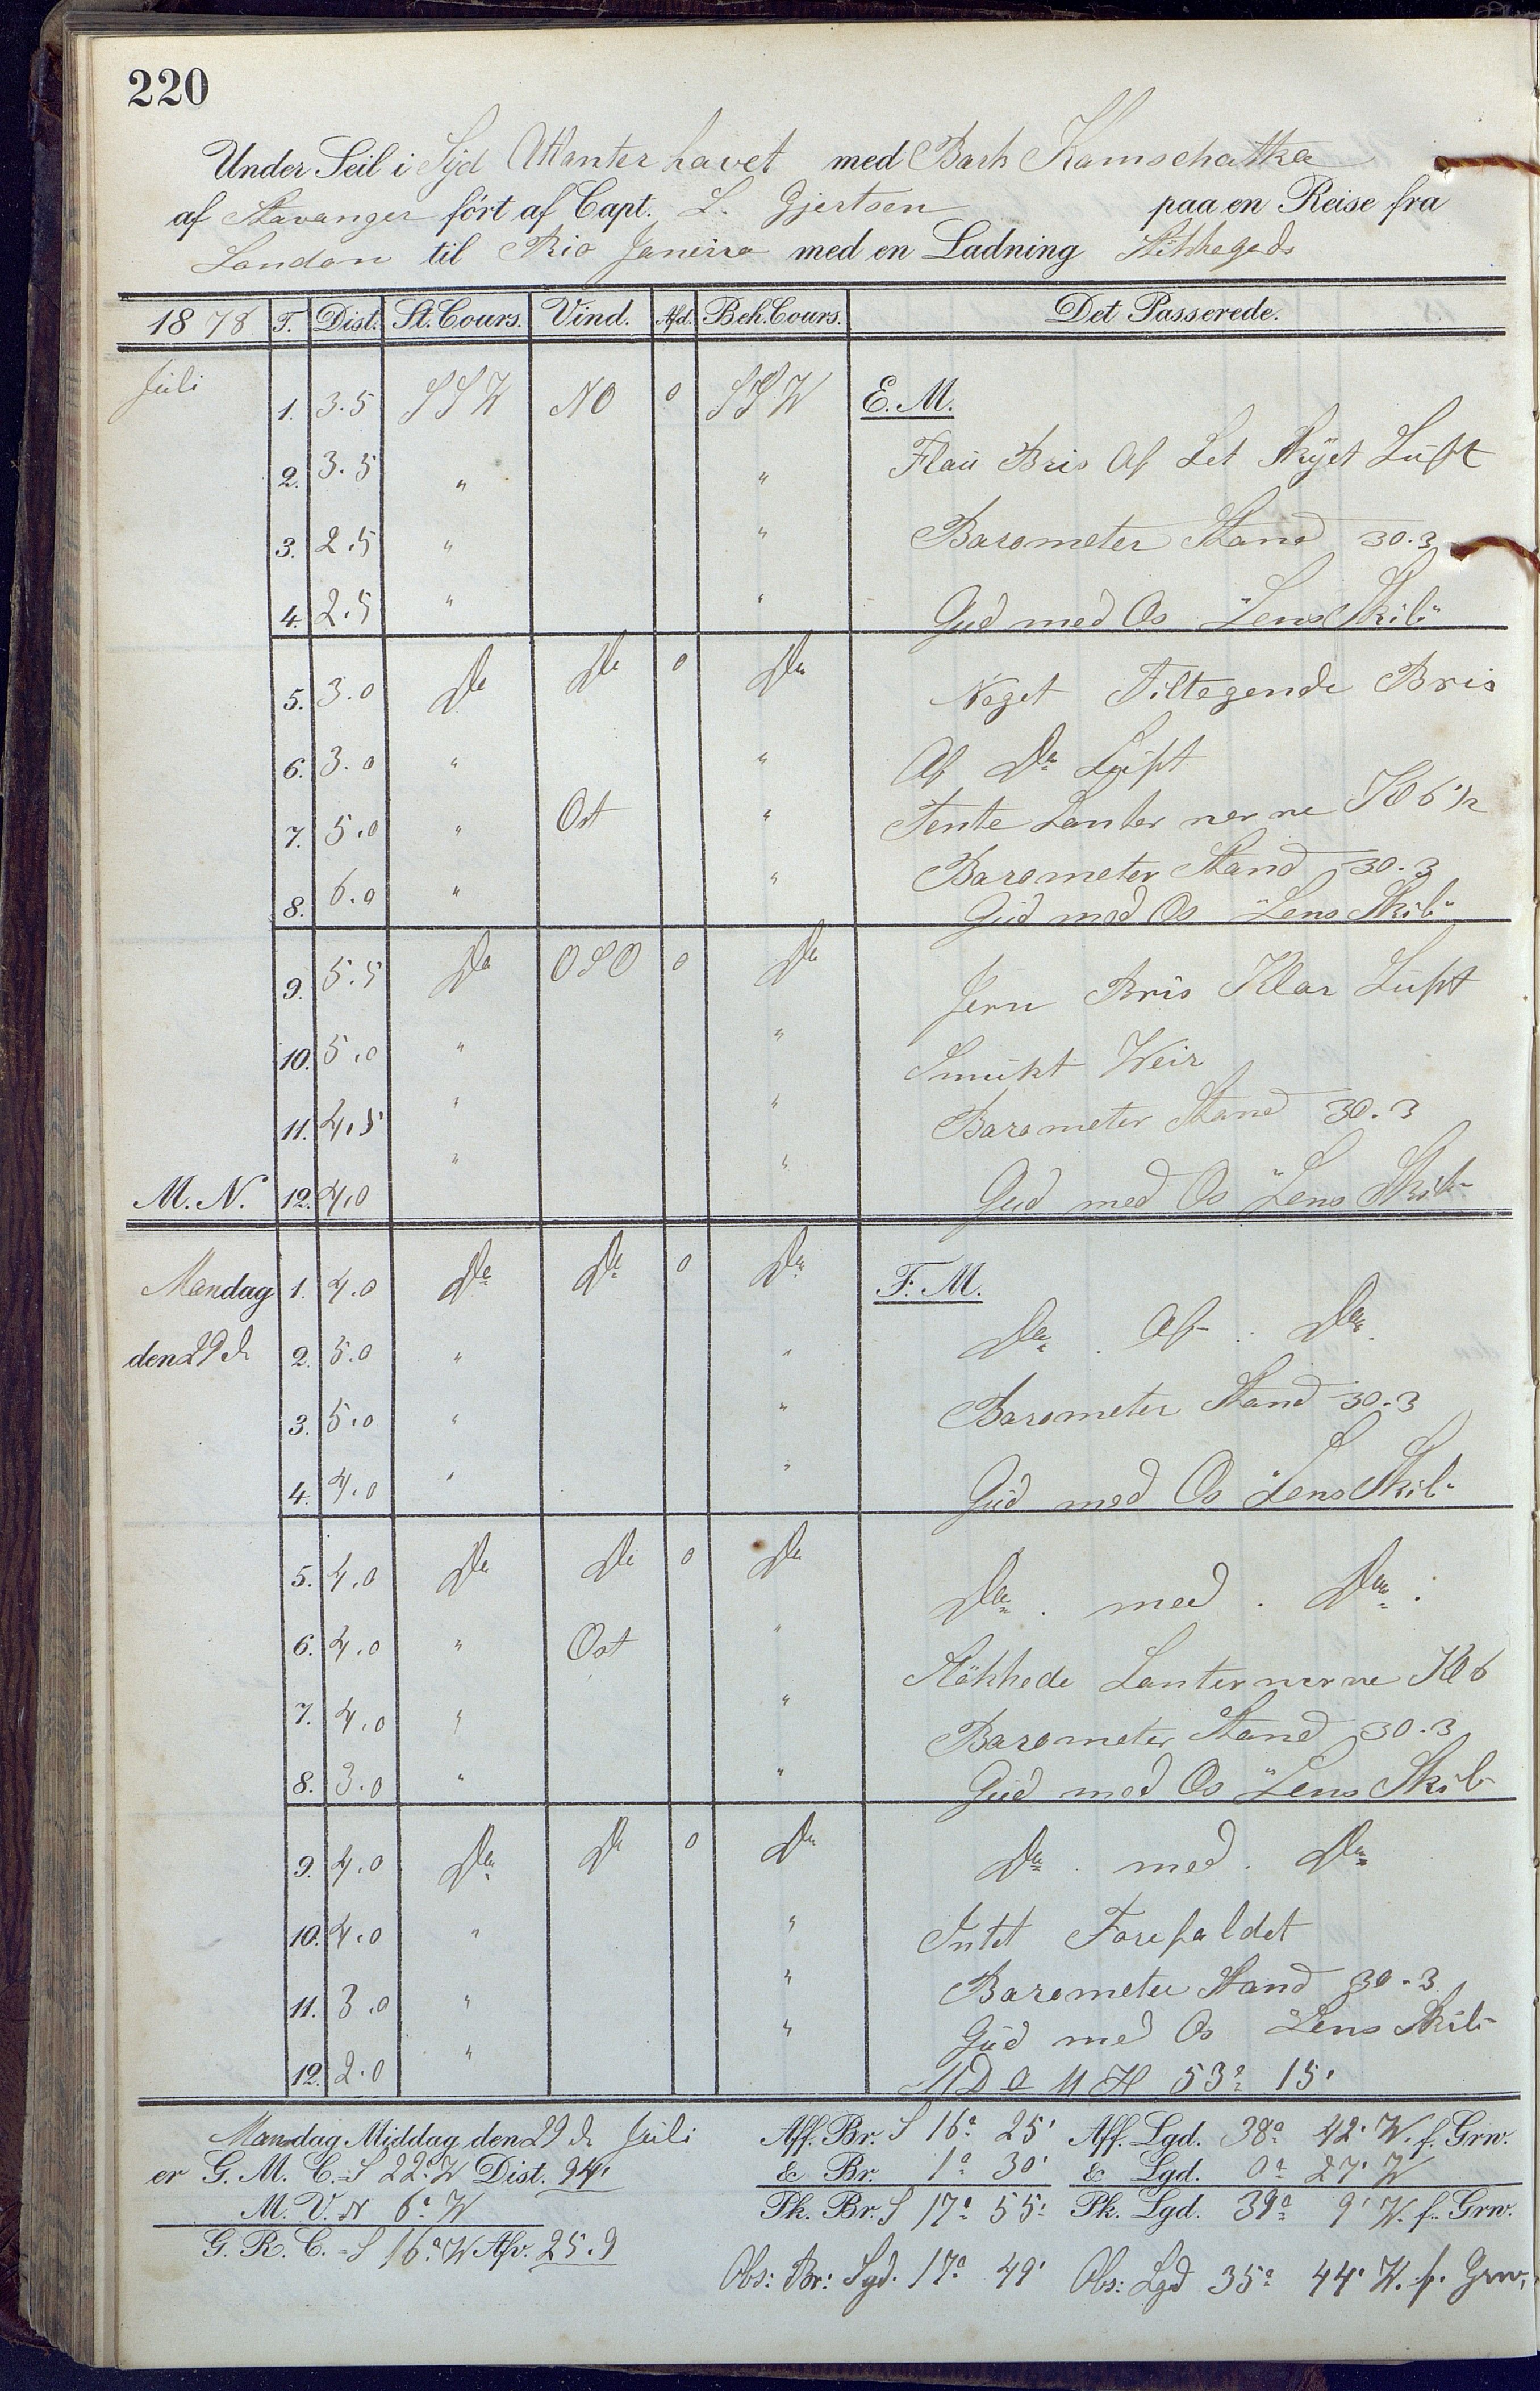 220
Under Seil i Syd Atlanter havet med Bark Kamschatka
af Stavanger ført af Capt. L. Gjertsen paa en Reise fra
London til Rio Janeiro med en Ladning Stikkegods
1878 T. Dist. St. Cours. Vind. Afd. Beh. Cours. Det Passerede.
Juli
1. 3.5 SSW NO 0 SSW E. M.
2. 3.5 " " Flau Bris Af Let Skyet Luft
3. 2.5 " " Barometer Stand 30.3
4. 2.5 " " Gud med Os "Lens Skib"
5. 3.0 Do Do 0 Do Noget Tiltagende Bris
6. 3.0 " " Af Do Luft
7. 5.0 " Ost " Tente Lanter nerne Kl 6 1/2
8. 6.0 " " Barometer Stand 30.3
Gud med Os "Lens Skib"
9. 5.5 Do OSO 0 Do Jevn Bris Klar Luft
10. 5.0 " " Smukt Veir
11. 4.5 " " Barometer Stand 30.3
M. N. 12. 4.0 " " Gud med Os "Lens Skib"
Mandag 1. 4.0 Do Do 0 Do F. M.
den 29 d. 2. 5.0 " " Do . Af . Do .
3. 5.0 " " Barometer Stand 30.3
4. 4.0 " " Gud med Os "Lens Skib"
5. 4.0 Do Do 0 Do Do . med . Do .
6. 4.0 " Ost " Slökkede Lanternerne Kl 6
7. 4.0 " " Barometer Stand 30.3
8. 3.0 " " Gud med Os "Lens Skib"
9. 4.0 Do Do 0 Do Do . med . Do
10. 4.0 " " Intet Forefaldet
11. 3.0 " " Barometer Stand 30.3
Gud med Os Lens Skib"
12. 2.0 " " 53° 15'
Mandag Middag den 29 d. Juli Aff. Br. S 16° 25' Aff. Lgd. 38° 42' W. f. Grw.
er G. M. C. = S 22° W Dist. 94' & Br. 1° 30' & Lgd. 0° 27' W
M. V. N 6° W Pk. Br. S 17° 55' Pk. Lgd. 39° 9' W. f. Grw.
G. R. C. = S 16° W Afv. 25.9
Obs: Br: Syd. 17° 49' Obs: Lgd 35° 44' W. f. Grw.